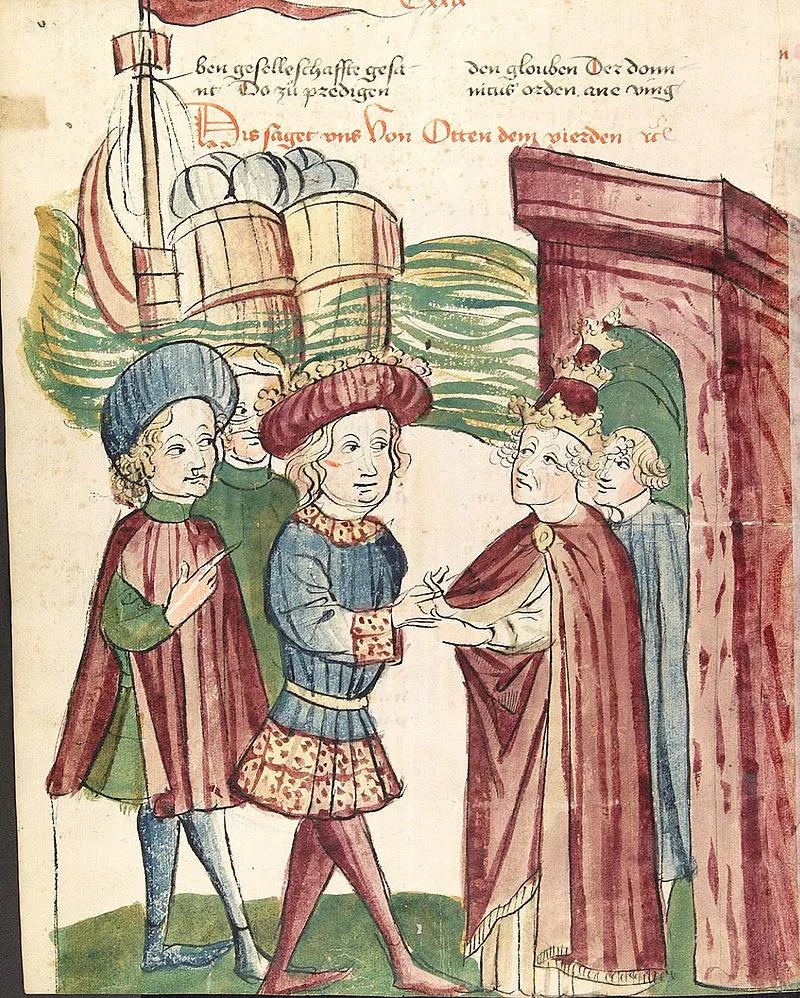 Cxiii
ben geselleschaffte gesa-
nt Do zu predigen
den glouben Der domi-
nicus orden ane ving
Dis saget uns von Otten dem vierden